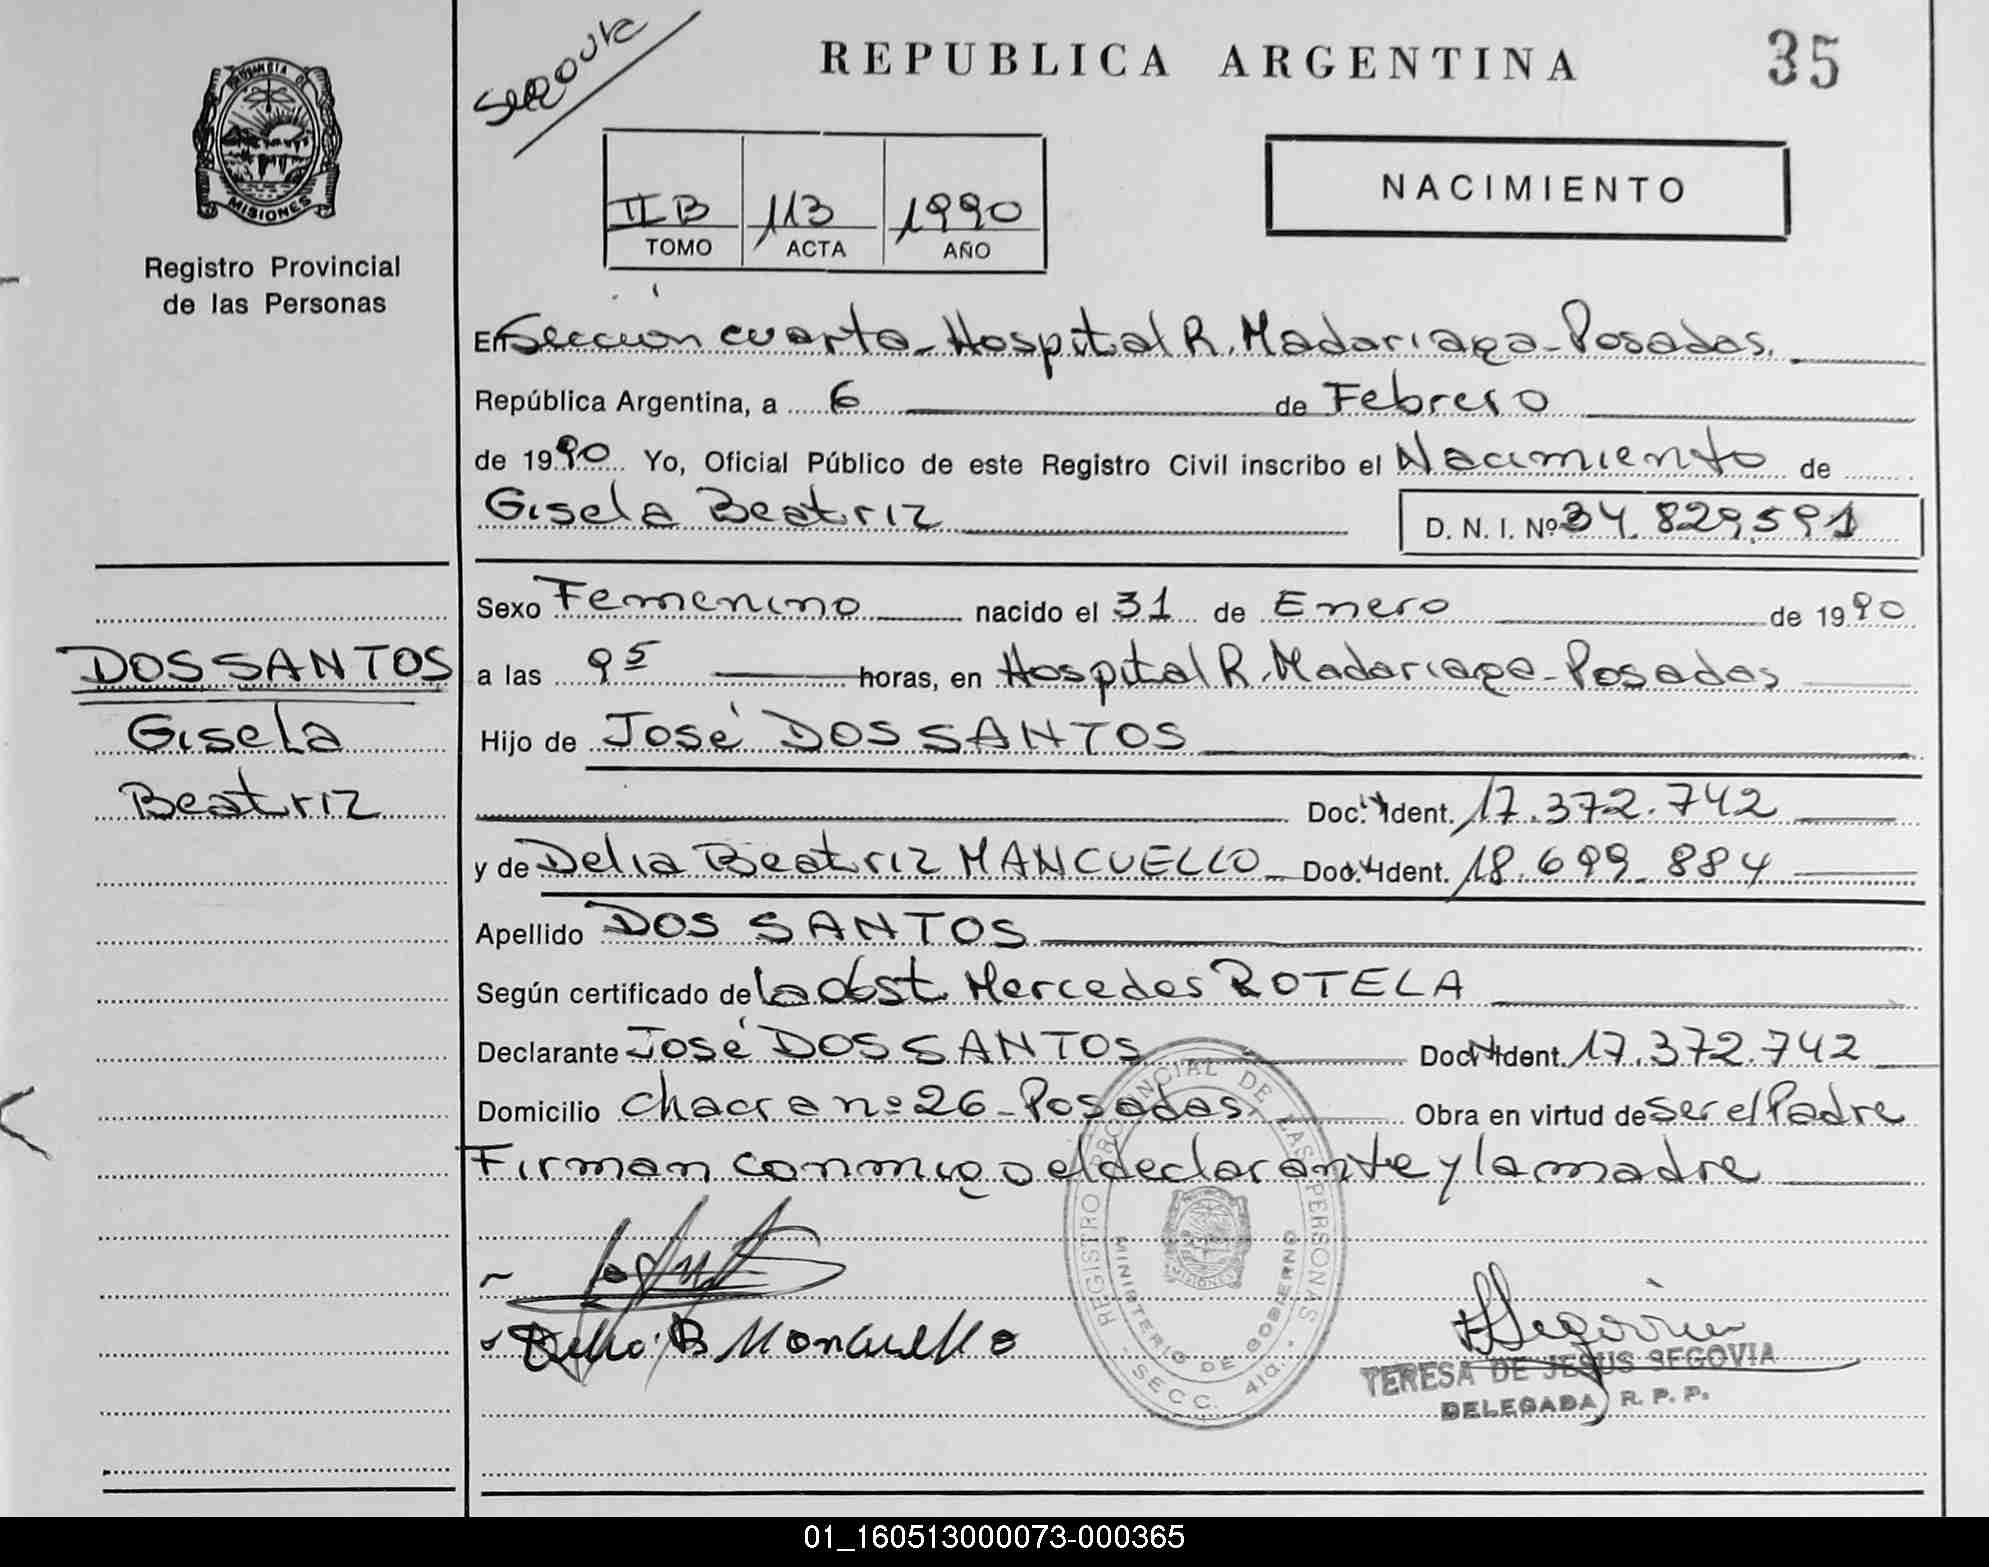 REPUBLICA ARGENTINA
35
PROVINCIA DE
MISIONES
Registro Provincial
de las Personas
II B 113 1990
TOMO ACTA AÑO
NACIMIENTO
En Sección cuarta - Hospital R. Madariaga - Posadas.
República Argentina, a 6 de Febrero
de 1990 Yo, Oficial Público de este Registro Civil inscribo el Nacimiento de
Gisela Beatriz D. N. I. Nº 34.829.591
Sexo Femenino nacido el 31 de Enero de 1990
a las 9 5 horas, en Hospital R. Madariaga - Posadas
DOS SANTOS
Gisela
Beatriz
Hijo de José DOS SANTOS
Doc. Ident. 17.372.742
y de Delia Beatriz MANCUELLO - Doc. Ident. 18.699.884
Apellido DOS SANTOS
Según certificado de la obst. Mercedes ROTELA
Declarante José DOS SANTOS Doc. Ident. 17.372.742
Domicilio chacra nº 26 - Posadas. Obra en virtud de ser el Padre
Firman conmigo el declarante y la madre
Delia B Mancuello
Segovia
REGISTRO PROVINCIAL DE LAS PERSONAS
MINISTERIO DE GOBIERNO
MISIONES
SECC. 4ta.
TERESA DE JESUS SEGOVIA
DELEGADA R. P. P.
01_160513000073-000365